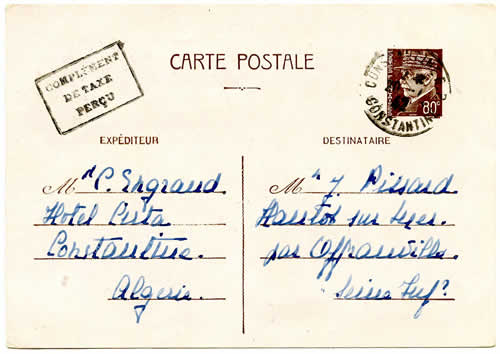 COMPLÉMENT
DE TAXE
PERÇU
CARTE POSTALE
CONSTANTINE
CONSTANTINE
80c
EXPÉDITEUR
M C. Engrand
Hotel Cirta
Constantine.
Algérie.
DESTINATAIRE
M J. Pissard
Hautot sur Mer.
par Offranville
Seine Infre